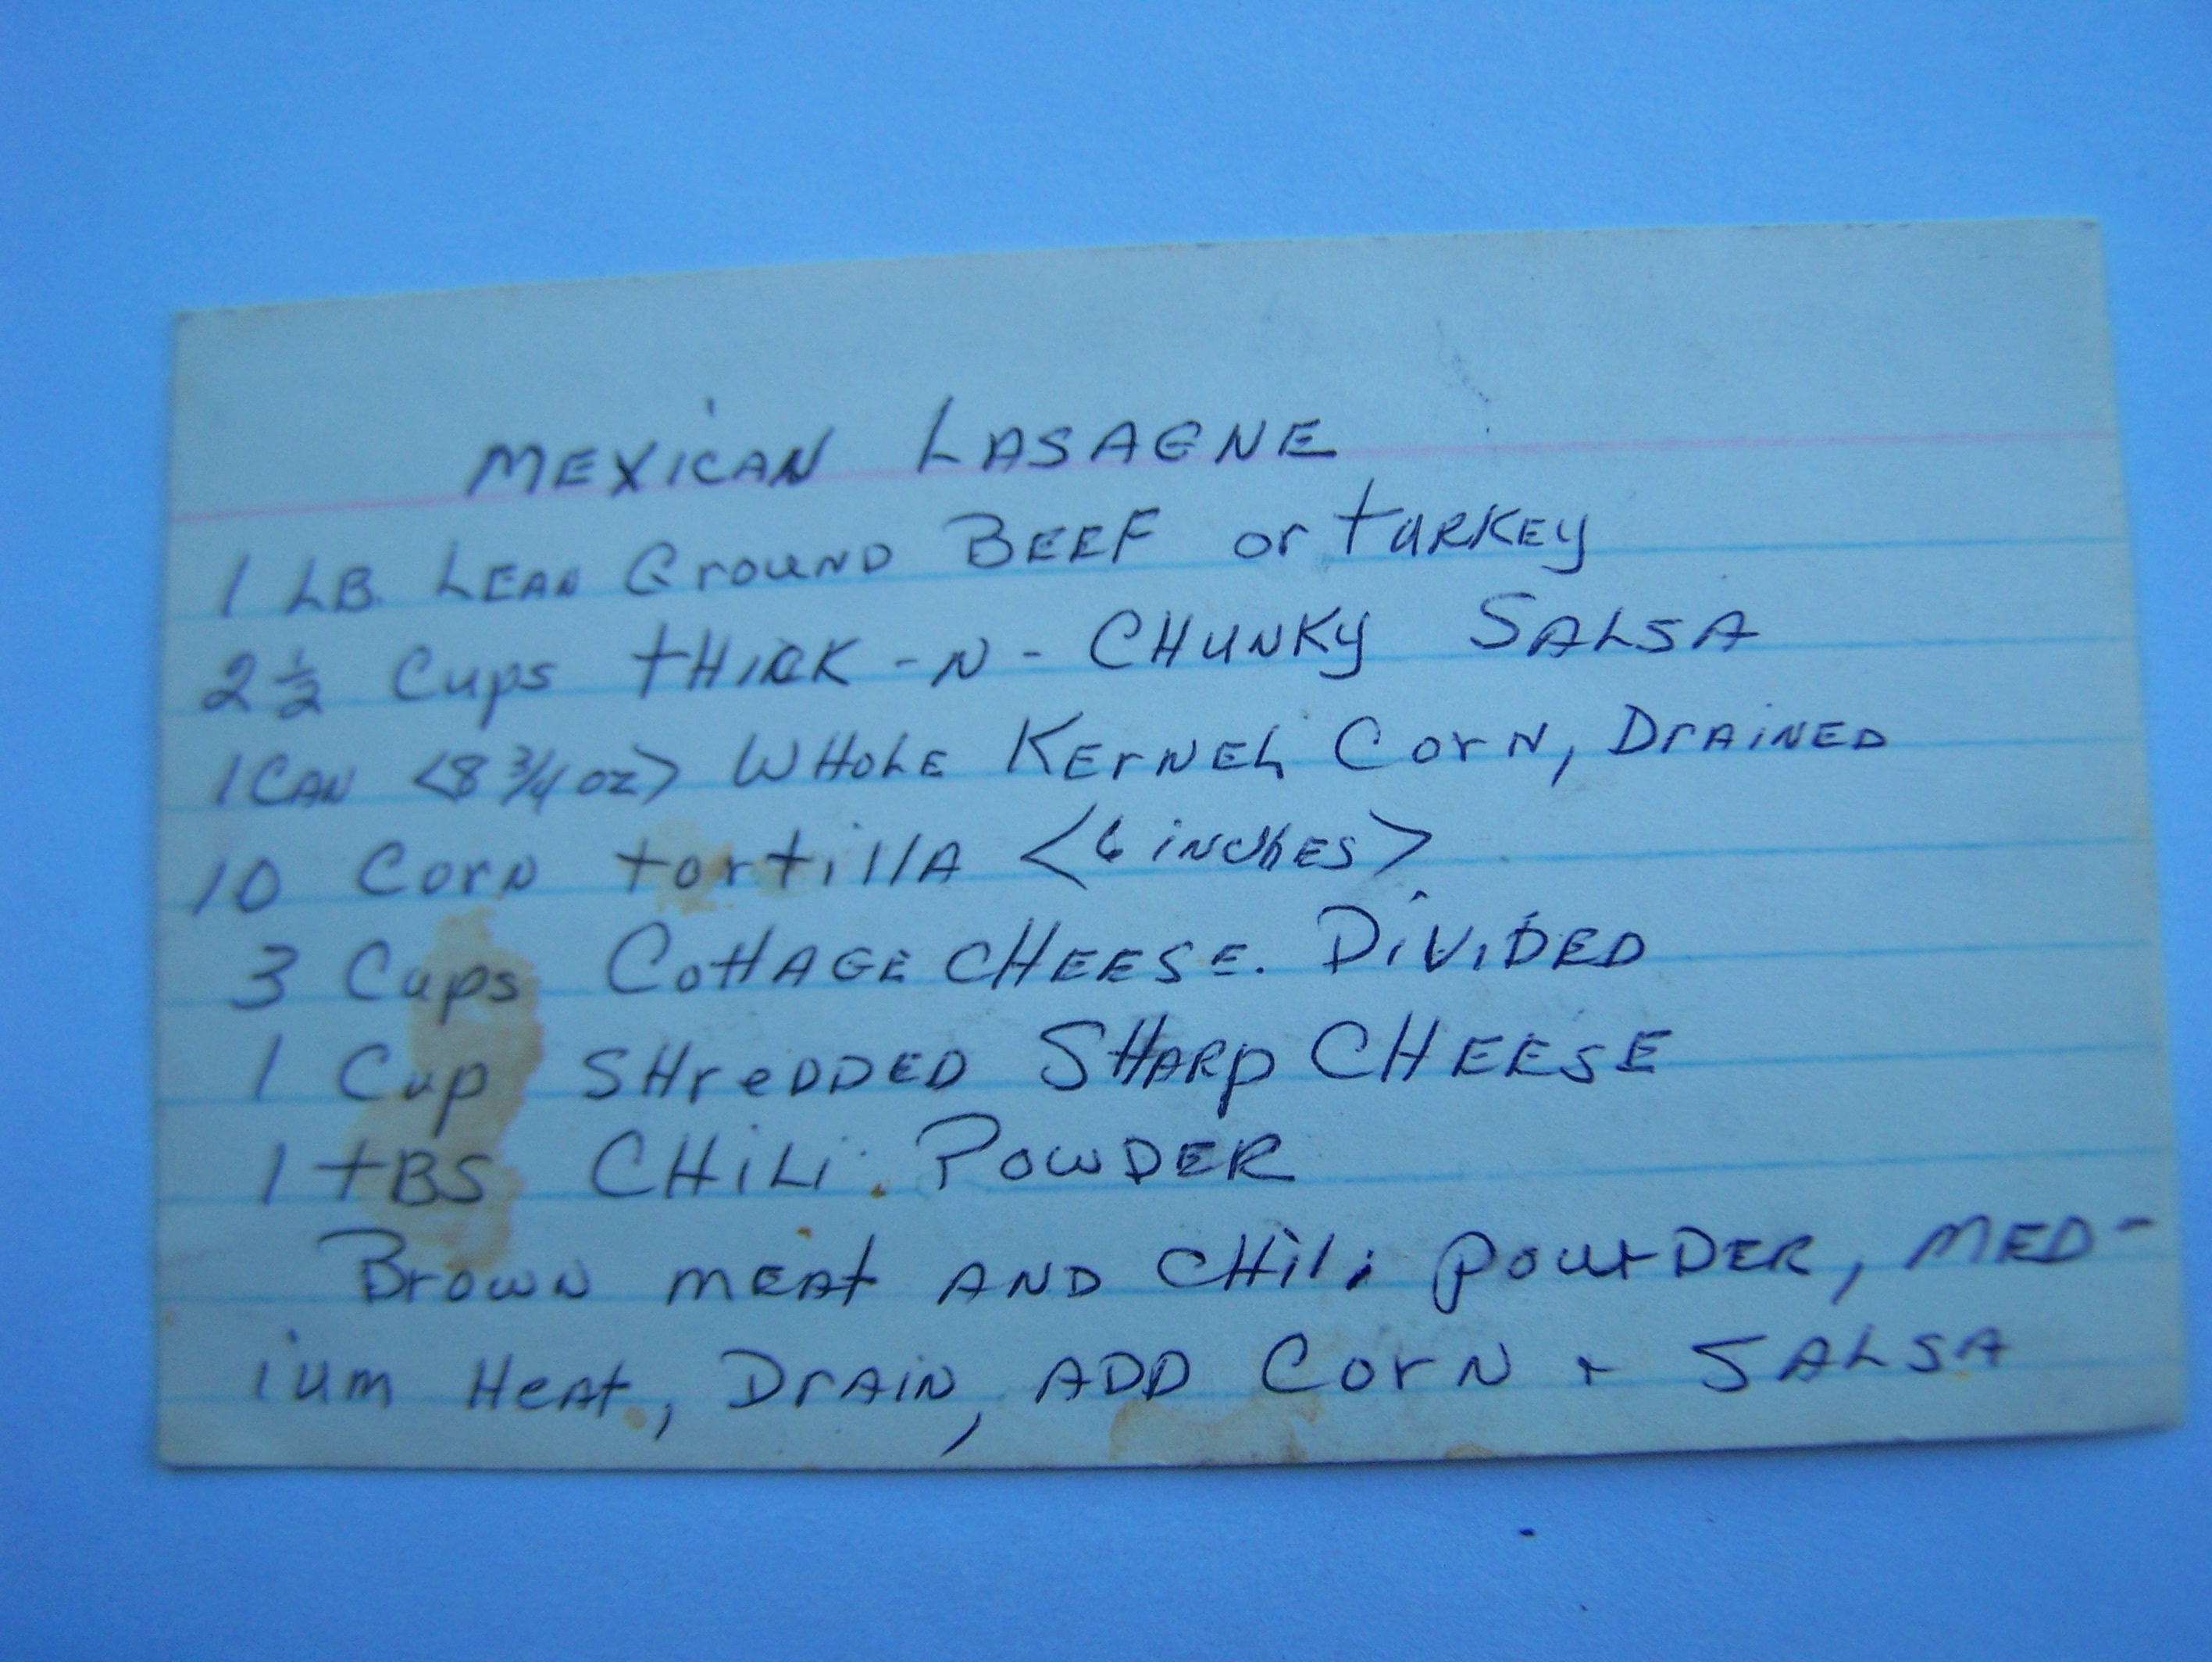 MEXICAN LASAGNE
1 LB. LEAN GROUND BEEF or tURKEY
2 1/2 Cups tHICK - N - CHUNKY SALSA
1 CAN <8 3/4 oz> WHOLE KErNEL CorN, DrAiNED
10 Corn tortillA <6 inches>
3 Cups CottAGE CHEESE. DiViDED
1 Cup SHreDDED SHARp CHEESE
1 tBS CHiLi POWDER
Brown mEAt AND CHili powDER, MED-
ium HeAt, DrAiN, ADD CorN + SALSA